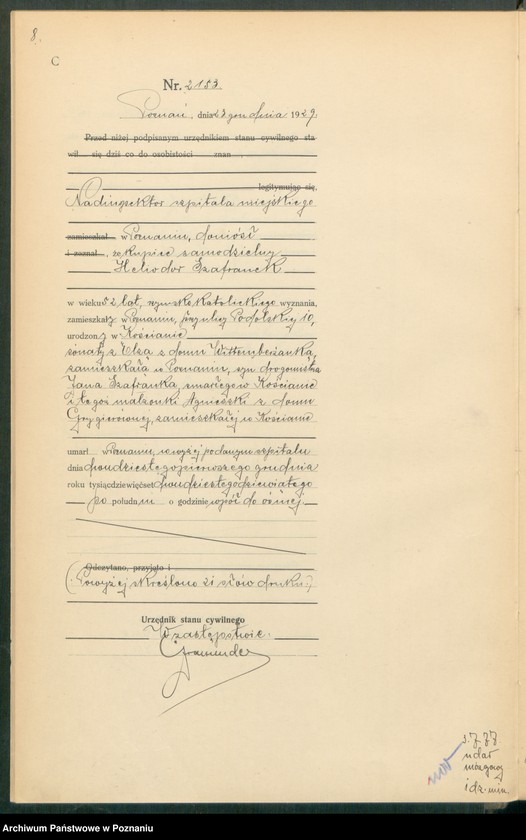 8.
C
Nr. 2183.
Poznań, dnia 23 grudnia 1929.
Przed niżej podpisanym urzędnikiem stanu cywilnego sta
wił się dziś co do osobistości znan
legitymując się,
Nadinspektor szpitala miejskiego
zamieszkał w Poznaniu, doniósł
i zeznał, że kupiec samodzielny
Heliodor Szafranek
w wieku 52 lat, rzymsko katolickiego wyznania,
zamieszkały w Poznaniu, przy ulicy Podolskiej 10,
urodzony w Kościanie
żonaty z Elzą z domu Wittenberżanką,
zamieszkałą w Poznaniu, syn drogomistrza
Jana Szafranka, zmarłego w Kościanie
i tegoż małżonki Agnieszki z domu
zamieszkałej w Kościanie
umarł w Poznaniu, w wyżej podanym szpitalu
dnia dwudziestego pierwszego grudnia
roku tysiącdziewięćset dwudziestego dziewiątego
po południu o godzinie wpół do ósmej.
Odczytano, przyjęto i
(: Powyżej skreślono 21 słów druku :)
Urzędnik stanu cywilnego
W zastępstwie
udar
mózgowy
Archiwum Państwowe w Poznaniu